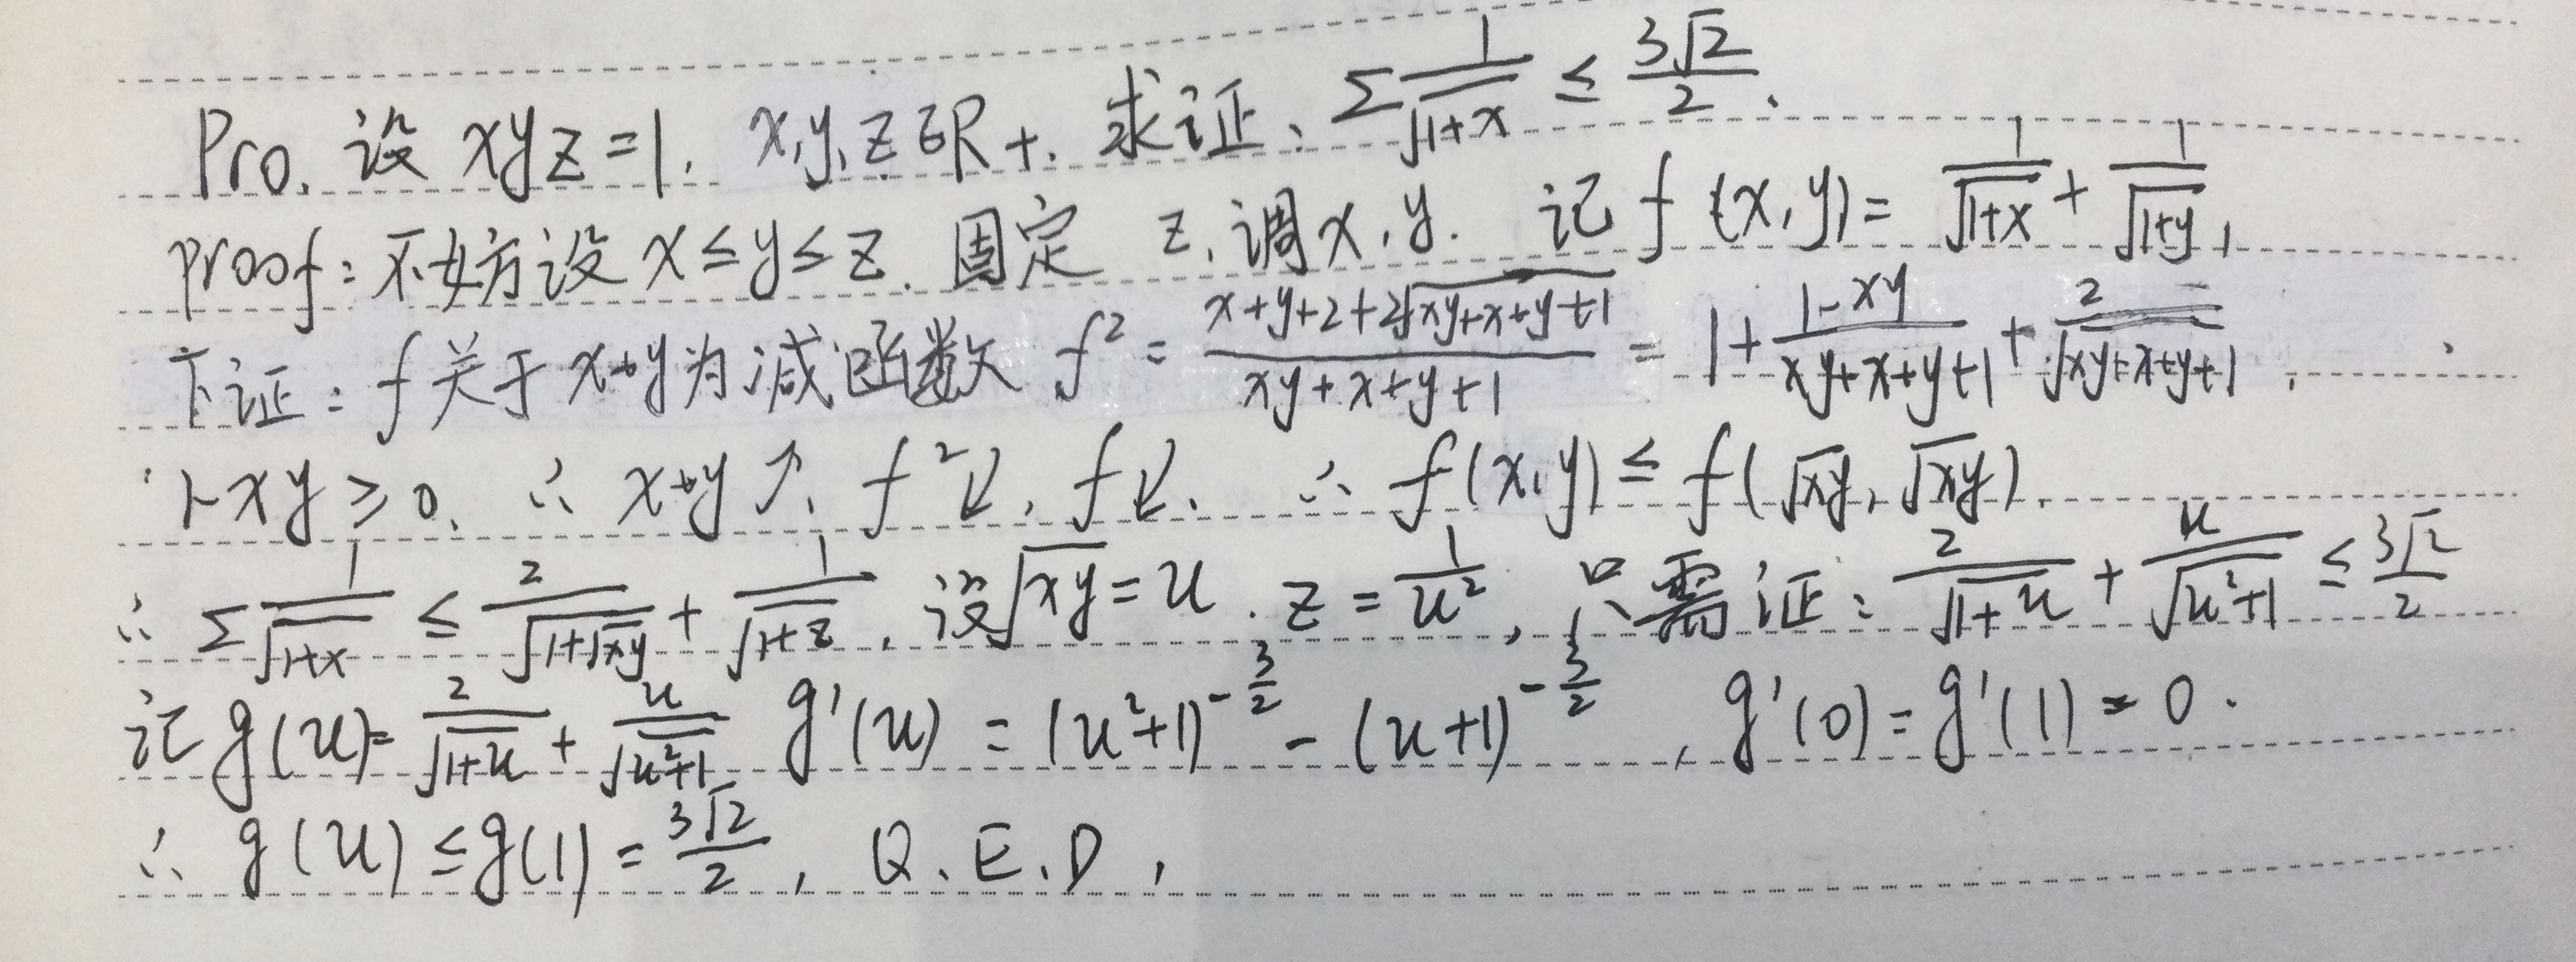 Pro. 设 xyz=1. x,y,z∈R+. 求证: Σ 1/√(1+x) ≤ 3√2/2.
proof: 不妨设 x≤y≤z. 固定 z, 调x,y. 记 f(x,y)= 1/√(1+x) + 1/√(1+y),
下证: f关于x+y为减函数 f² = (x+y+2+2√(xy+x+y+1))/(xy+x+y+1) = 1+ (1-xy)/(xy+x+y+1) + 2/√(xy+x+y+1).
∵1-xy≥0. ∴ x+y↗, f²↙, f↙. ∴ f(x,y)≤f(√xy, √xy).
∴ Σ 1/√(1+x) ≤ 2/√(1+√xy) + 1/√(1+z), 设√xy=u. z=1/u², 只需证: 2/√(1+u) + u/√(u²+1) ≤ 3√2/2
记 g(u)= 2/√(1+u) + u/√(u²+1) g'(u) = (u²+1)^(-3/2) - (u+1)^(-3/2), g'(0)=g'(1)=0.
∴ g(u)≤g(1)= 3√2/2, Q.E.D,